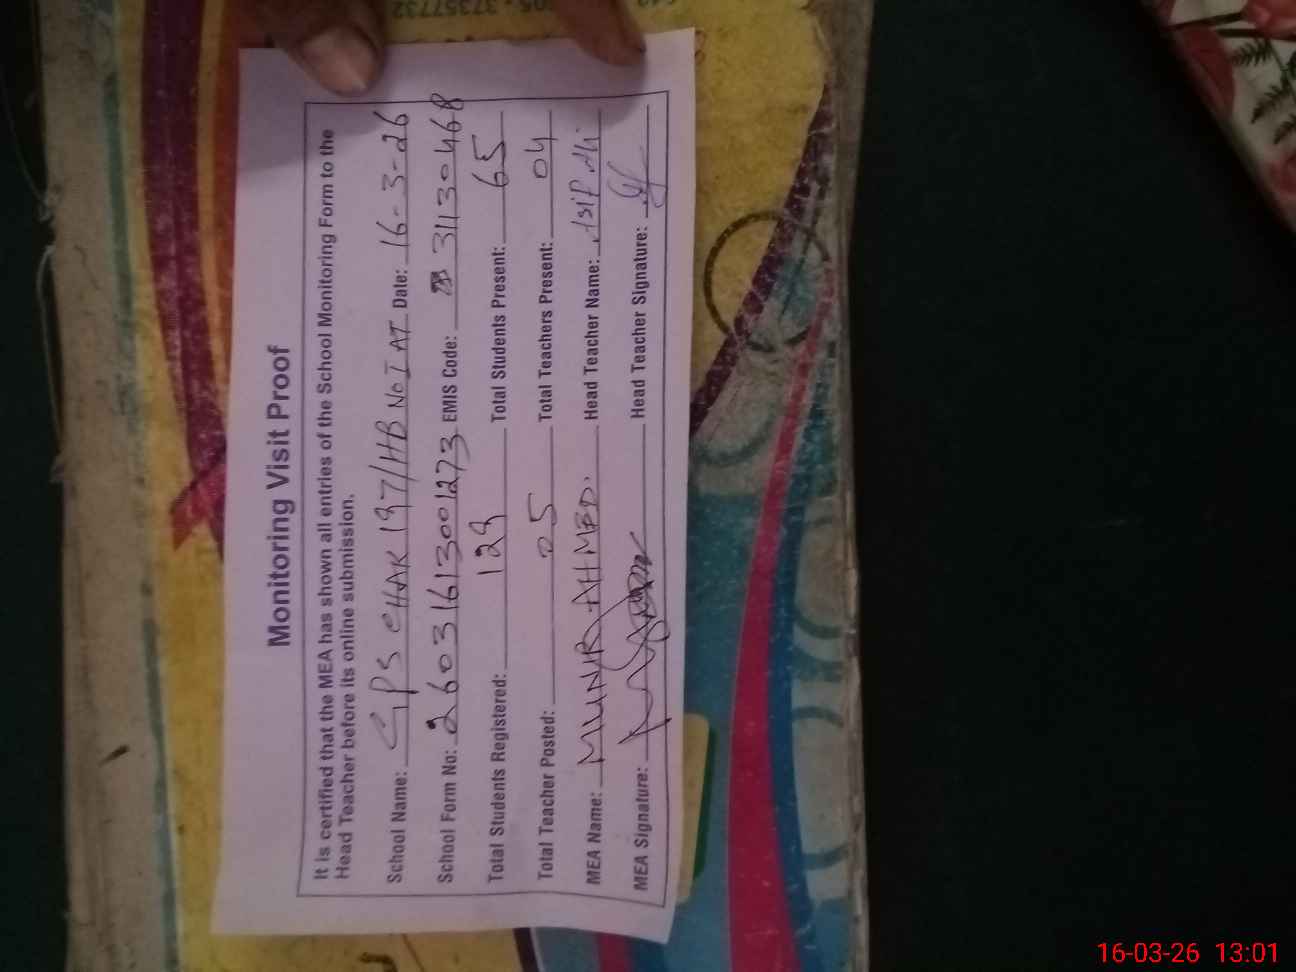 Monitoring Visit Proof
It is certified that the MEA has shown all entries of the School Monitoring Form to the
Head Teacher before its online submission.
School Name: GPS CHAK 197/HB No I AT Date: 16-3-26
School Form No: 26031613001273 EMIS Code: 31130468
Total Students Registered: 129 Total Students Present: 65
Total Teacher Posted: 05 Total Teachers Present: 04
MEA Name: MUNIR AHMED. Head Teacher Name: Asif Ali.
MEA Signature: Head Teacher Signature:
16-03-26 13:01